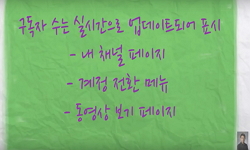 구독자 수는 실시간으로 업데이트되어 표시
- 내 채널 페이지
- 계정 전환 메뉴
- 동영상 보기 페이지